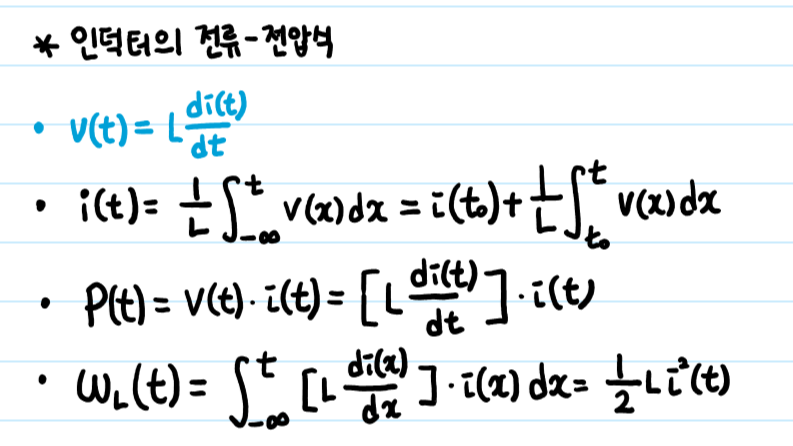 * 인덕터의 전류-전압식
• v(t) = L di(t)/dt
• i(t) = 1/L ∫_{-∞}^{t} v(x)dx = i(t₀) + 1/L ∫_{t₀}^{t} v(x)dx
• P(t) = v(t)·i(t) = [L di(t)/dt]·i(t)
• ω_L(t) = ∫_{-∞}^{t} [L di(x)/dx]·i(x) dx = 1/2 L i²(t)